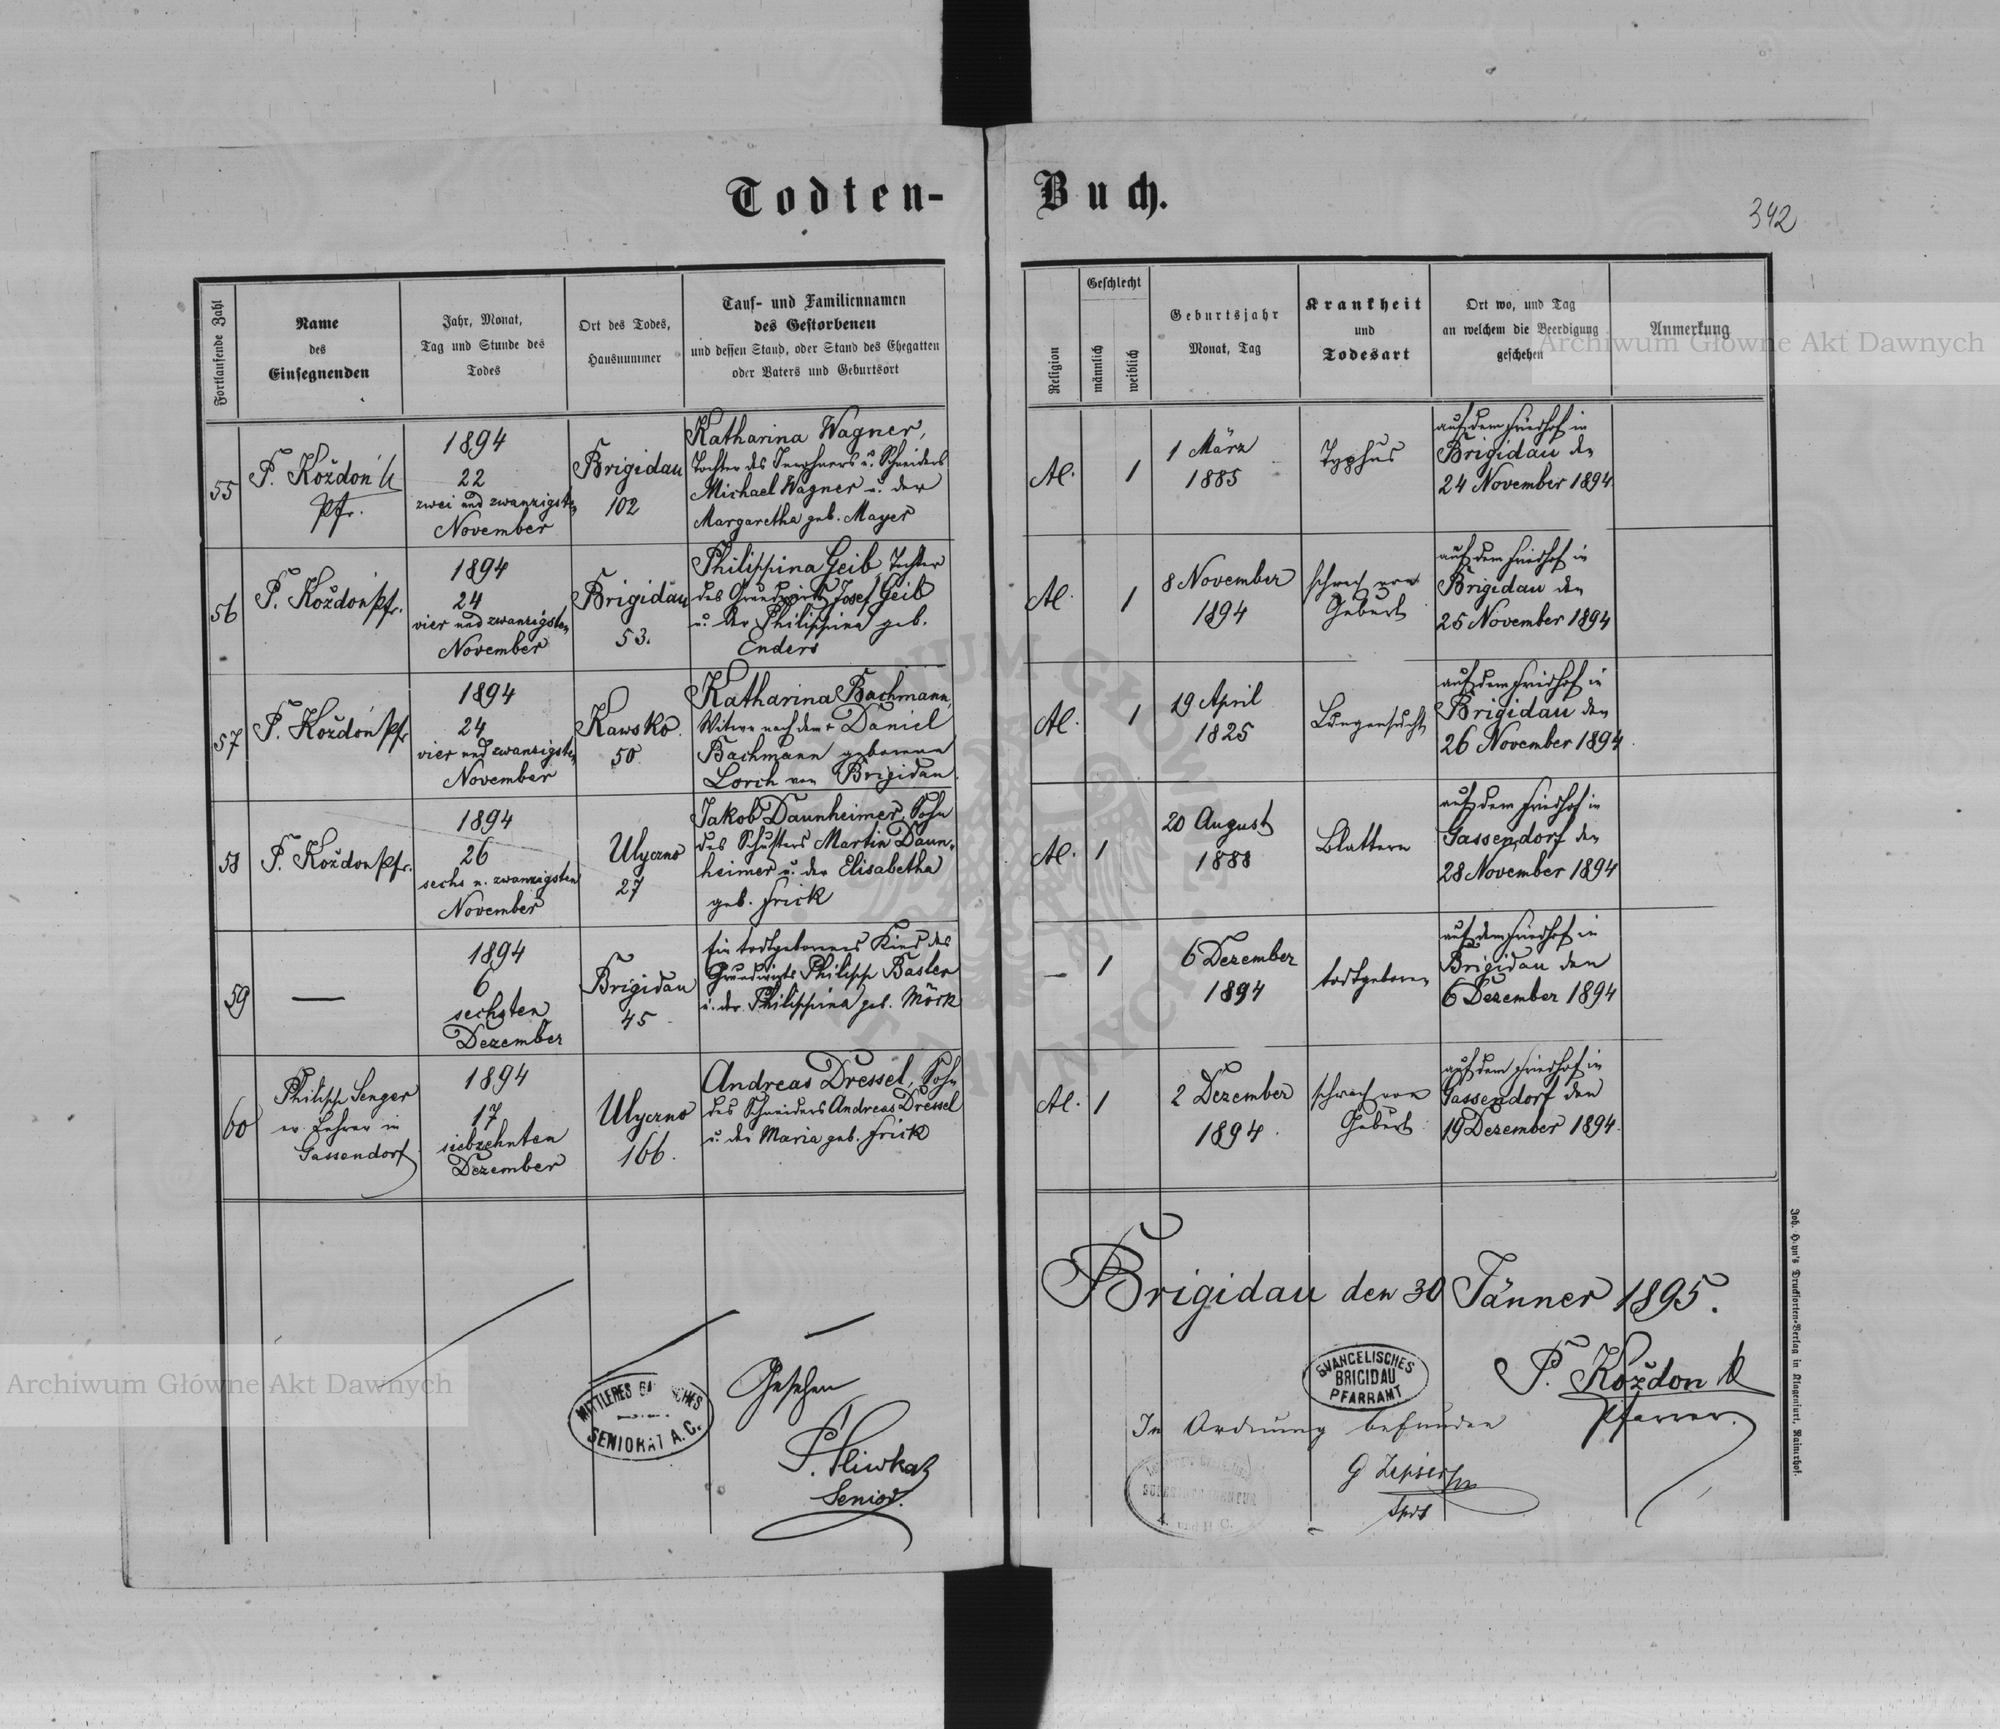 Todten-Buch.
342
Fortlaufende Zahl
Name
des
Einsegnenden
Jahr, Monat,
Tag und Stunde des
Todes
Ort des Todes,
Hausnummer
Tauf- und Familiennamen
des Gestorbenen
und dessen Stand, oder Stand des Ehegatten
oder Vaters und Geburtsort
Religion
Geschlecht
männlich
weiblich
Geburtsjahr
Monat, Tag
Krankheit
und
Todesart
Ort wo, und Tag
an welchem die Beerdigung
geschehen
Anmerkung
55
P. Koždoń
Pfr.
1894
22
zwei und zwanzigsten
November
Brigidau
102
Katharina Wagner,
Tochter des Inwohners u. Schneiders
Michael Wagner u. der
Margaretha geb. Mayer
AC.
1
1 März
1885
Typhus
auf dem Friedhof in
Brigidau den
24 November 1894
56
P. Koždoń Pfr.
1894
24
vier und zwanzigsten
November
Brigidau
53.
Philippina Geib Tochter
des Grundwirts Josef Geib
u. der Philippina geb.
Enders
AC.
1
8 November
1894
schwach von
Geburt
auf dem Friedhof in
Brigidau den
25 November 1894
57
P. Koždoń Pfr
1894
24
vier und zwanzigsten
November
Kawsko
50.
Katharina Bachmann,
Witwe nach dem + Daniel
Bachmann geborene
Lorch von Brigidau
AC.
1
19 April
1825
Lungensucht
auf dem Friedhof in
Brigidau den
26 November 1894
58
P. Koždon Pfr.
1894
26
sechs u. zwanzigsten
November
Ulyczno
27
Jakob Daunheimer, Sohn
des Schusters Martin Daun-
heimer u. der Elisabetha
geb. Frick
AC.
1
20 August
1888
Blattern
auf dem Friedhof in
Gassendorf den
28 November 1894
59
—
1894
6
sechsten
Dezember
Brigidau
45
Ein todtgeborenes Kind des
Grundwirts Philipp Basler
u. der Philippina geb. Mörk
—
1
6 Dezember
1894
todtgeboren
auf dem Friedhof in
Brigidau den
6 Dezember 1894
60
Philipp Senger
ev. Lehrer in
Gassendorf
1894
17
siebzehnten
Dezember
Ulyczno
166.
Andreas Dressel, Sohn
des Schneiders Andreas Dressel
u. der Maria geb. Frick
AC.
1
2 Dezember
1894.
schwach von
Geburt
auf dem Friedhof in
Gassendorf den
19 Dezember 1894.
Brigidau den 30 Jänner 1895.
EVANGELISCHES
BRIGIDAU
PFARRAMT
P. Koždon
Pfarrer.
MITTLERES
SENIORAT A.C.
Gesehen
Senior.
In Ordnung befunden
Joh. Heyn's Drucksorten-Verlag in Klagenfurt, Rainerhof.
Archiwum Główne Akt Dawnych
Archiwum Główne Akt Dawnych
ARCHIWUM GŁÓWNE AKT DAWNYCH